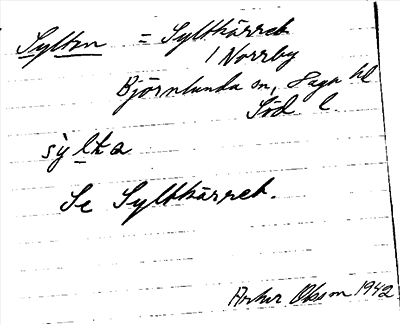 Sylten = Syltkärret
i Norrby
Björnlunda sn, Daga hd
Söd l.
sy̆lta
Se Syltkärret.
Olsson 1942